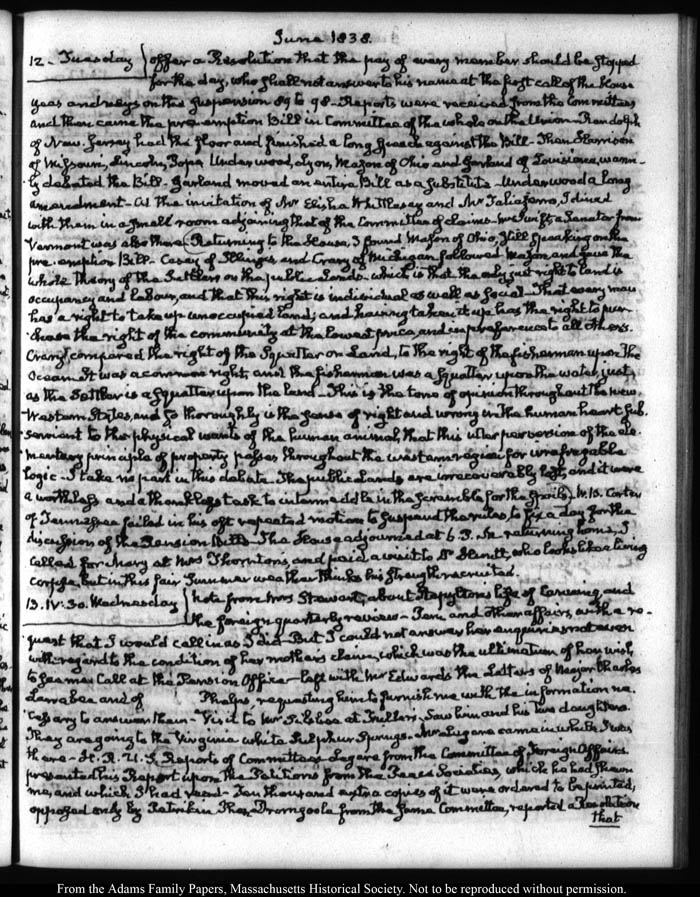 June 1838.
12. Tuesday offer a Resolution that the pay of every member should be stopped
for the day, who shall not answer to his name at the first call of the House
yeas and nays on the suspension 89 to 98. Reports were received from the Committees
and then came the pre-emption Bill in Committee of the whole on the Union. Randolph
of New Jersey had the floor and finished a long Speech against the Bill. Then Harrison
of Missouri, Lincoln, Pope Underwood, Lyon, Mason of Ohio and Garland of Louisiana, warm-
ly debated the Bill. Garland moved an entire Bill as a substitute. Underwood a long
amendment. At the invitation of Mr Elisha Whittlesey and Mr Taliaferro, I dined
with them in a small room adjoining that of the Committee of claims. Mr Swift, a Senator from
Vermont was also there. Returning to the House, I found Mason of Ohio, still speaking on the
pre-emption Bill. Casey of Illinois and Crary of Michigan followed Mason, and gave the
whole theory of the Settlers on the public Lands. which is that the only just right to land is
occupancy and labour, and that this right is individual as well as social. That every man
has a right to take up unoccupied land; and having taken it up has the right to pur-
chase the right of the community at the lowest price, and in preference to all others.
Crary compared the right of the Squatter on Land, to the right of the fisherman upon the
Ocean. It was a common right, and the fisherman was a squatter upon the water, just
as the Settler is a squatter upon the land. This is the tone of opinion throughout the new
Western States, and so thoroughly is the sense of right and wrong in the human heart sub-
servient to the physical wants of the human animal, that this utter perversion of the ele-
mentary principle of property passes throughout the western region for irrefragable
logic. I take no part in this debate. The public Lands are irrecoverably lost, and it were
a worthless and a thankless task to intermeddle in the scramble for the spoils. W. B. Carter
of Tennessee failed in his oft repeated motion to suspend the rules, to fix a day for the
discussion of the Pension Bills. The House adjourned at 6 P.M. In returning home, I
called for Mary at Mrs Thorntons, and paid a visit to Dr Hunt, who looks like a living
corpse, but in this fair Summer weather thinks his strength recruited.
13. IV:30. Wednesday Note from Mrs Stewart, about Stapyltons life of Canning, and
the foreign quarterly review. Tenn and other affairs, with a re-
quest that I would call in as I did. But I could not answer her enquiries not even
with regard to the condition of her mother's claim, which was the ultimation of her wish
to see me. Call at the Pension Office. left with Mr Edwards the Letters of Major Charles
Larrabee and of Phelps, requesting him to furnish me with the information ne-
cessary to answer them. Visit to Mr Sibley at Fullers. Saw him and his two daughters.
They are going to the Virginia white Sulphur Springs. Mr Legare came in while I was
there. H. R. U. S. Reports of Committees. Legare from the Committee of Foreign Affairs.
presented his Report upon the Petitions from the Peace Societies, which he had shewn
me, and which I had read. Ten thousand extra copies of it were ordered to be printed,
opposed only by Petrikin. Then, Dromgoole from the same Committee, reported a Resolution
that
From the Adams Family Papers, Massachusetts Historical Society. Not to be reproduced without permission.